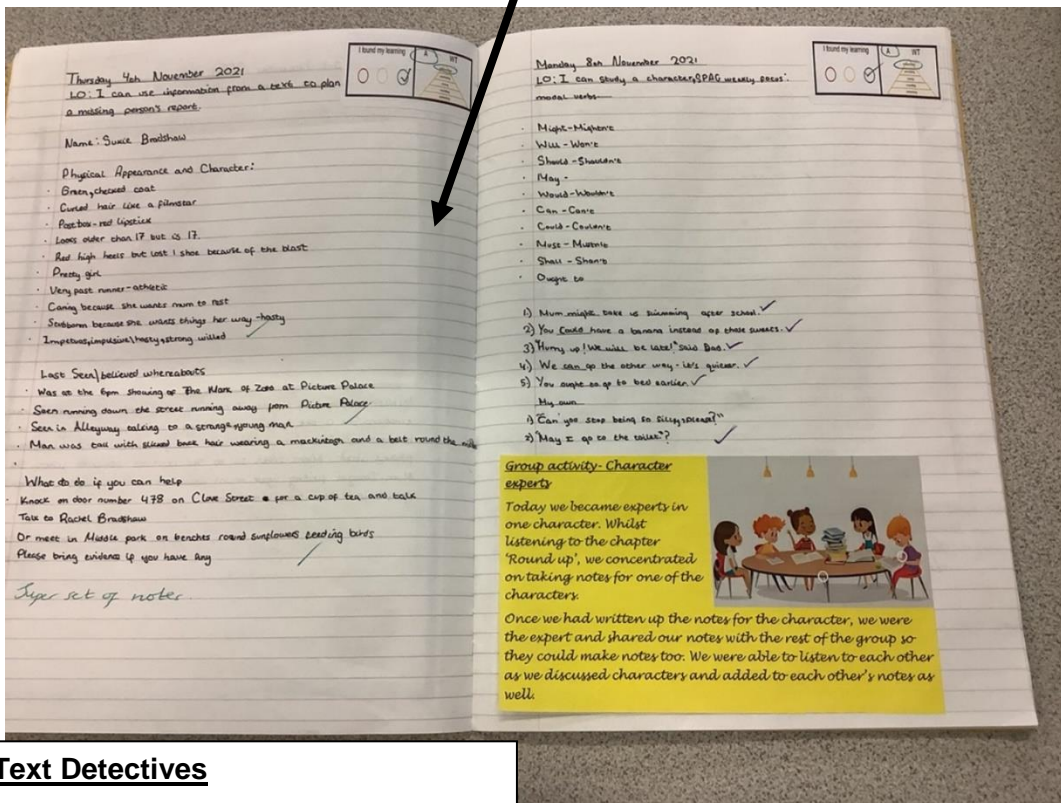 I found my learning
A
WT
Thursday 4th November 2021
LO: I can use information from a text to plan
a missing person's report.
Name: Suzie Bradshaw
Physical Appearance and Character:
· Green, checked coat
· Curled hair like a filmstar
· Postbox-red lipstick
· Looks older than 17 but is 17.
· Red high heels but lost 1 shoe because of the blast
· Pretty girl
· Very fast runner-athletic
· Caring because she wants mum to rest
· Stubborn because she wants things her way-hasty
· Impetuous, impulsive\hasty, strong willed
Last Seen\believed whereabouts
· Was at the 6pm showing of The Mark of Zorro at Picture Palace
· Seen running down the street running away from Picture Palace.
· Seen in Alleyway talking to a strange young man
· Man was tall with slicked back hair wearing a mackintosh and a belt round the
What do do if you can help
· Knock on door number 478 on Clove Street for a cup of tea and talk
Talk to Rachel Bradshaw
Or meet in Middle park on benches round sunflowers feeding birds
Please bring evidence if you have any
Super set of notes.
I found my learning
A
WT
Monday 8th November 2021
LO: I can study a character, SPAG weekly focus:
modal verbs.
· Might-Mightn't
· Will - Won't
· Should -Shouldn't
· May -
· Would-Wouldn't
· Can - Can't
· Could - Couldn't
· Must - Mustn't
· Shall - Shan't
· Ought to
1) Mum might take us swimming after school.
2) You could have a banana instead of those sweets.
3) "Hurry up! We will be late!" said Dad.
4) We can go the other way - it's quieter.
5) You ought to go to bed earlier.
My own
1) "Can you stop being so silly please?"
2) "May I go to the toilet"?
Group activity- Character
experts
Today we became experts in
one character. Whilst
listening to the chapter
'Round up', we concentrated
on taking notes for one of the
characters.
Once we had written up the notes for the character, we were
the expert and shared our notes with the rest of the group so
they could make notes too. We were able to listen to each other
as we discussed characters and added to each other's notes as
well.
Text Detectives